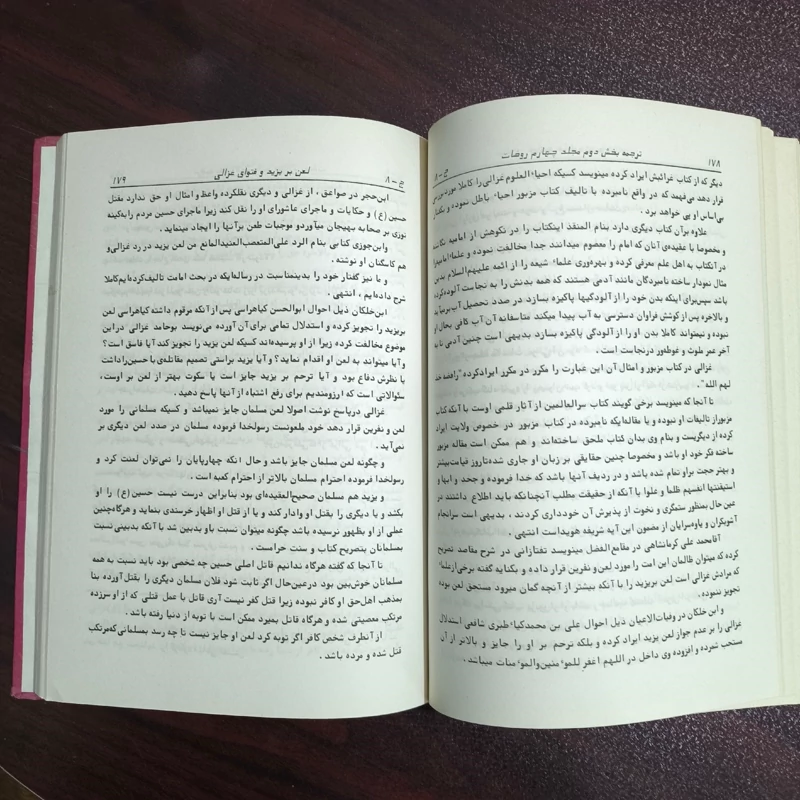 ۱۷۸ ترجمه بخش دوم مجلد چهارم روضات ج – ۸
دیگر که از کتاب غرائبش ایراد کرده مینویسد کسیکه احیاء العلوم غزالی را کاملا مورد بررسی
قرار دهد می‌فهمد که در واقع نامبرده با تالیف کتاب مزبور احیاء باطل نموده و سکتار
بی‌اساس او پی خواهد برد .
علاوه برآن کتاب دیگری دارد بنام المنقذ اینکتاب را در نکوهش از امامیه نگاشته
و مخصوصا با عقیده‌ی آنان که امام را معصوم میدانند جدا مخالفت نموده و علماء امامیه را
در آنکتاب به اهل علم معرفی کرده و بهره‌وری علماء شیعه را از ائمه علیهم‌السلام بدین
مثال نمودار ساخته نامبردگان مانند آدمی هستند که همه بدنش را به نجاست آلوده کرده
باشد سپس برای اینکه بدن خود را از آلودگیها پاکیزه بسازد در صدد تحصیل آب برمیآید
و بالاخره پس از کوشش فراوان دسترسی به آب پیدا میکند متاسفانه آن آب کافی بحال او
نبوده و نمیتواند کاملا بدن او را از آلودگی پاکیزه بسازد بدیهی است چنین آدمی تا به
آخر عمر ملوث و غوطه‌ور درنجاست است .
غزالی در کتاب مزبور و امثال آن این عبارت را مکرر در مکرر ایرادکرده "رافضه خذ
لهم الله" .
تا آنجا که مینویسد برخی گویند کتاب سرالعالمین از آثار قلمی اوست با آنکه کتاب
مزبوراز تالیفات او نبوده و یا مقاله‌ایکه نامبرده در کتاب مزبور در خصوص ولایت ایراد
کرده از دیگریست و بنام وی بدان کتاب ملحق ساخته‌اند و هم ممکن است مقاله مزبور
ساخته فکر خود او باشد و مخصوصا چنین حقایقی بر زبان او جاری شده‌تاروز قیامت‌بیشتر
و بهتر حجت براو تمام شده باشد و در ردیف آنها باشد که خدا فرموده و جحد وابها و
استیقنتها انفسهم ظلما و علوا با آنکه از حقیقت مطلب آنچنانکه باید اطلاع داشتند در
عین حال بمنظور ستمگری و نخوت از پذیرش آن خودداری کردند ، بدیهی است سرانجام
آشوبگران و یاوه‌سرایان از مضمون این آیه شریفه هویداست انتهی .
آقامحمد علی کرمانشاهی در مقامع‌الفضل مینویسد تفتازانی در شرح مقاصد تصریح
کرده که میتوان ظالمان این امت را مورد لعن و نفرین قرار داد و بکنایه گفته برخی ازعلماء
که مرادش غزالی است لعن بریزید را با آنکه بیشتر از آنچه گمان میرود مستحق لعن بوده
تجویز ننموده .
و ابن خلکان در وفیات‌الاعیان ذیل احوال علی بن محمدکیاء طبری شافعی استدلال
غزالی را بر عدم جواز لعن یزید ایراد کرده و بلکه ترحم بر او را جایز و بالاتر از آن
مستحب شمرده و افزوده وی داخل در اللهم اغفر للموءمنین‌والموءمنات میباشد .
ج – ۸ لعن بر یزید و فتوای غزالی ۱۷۹
ابن‌حجر در صواعق ، از غزالی و دیگری نقلکرده واعظ و امثال او حق ندارد مقتل
حسین (ع) و حکایات و ماجرای عاشورای او را نقل کند زیرا ماجرای حسین مردم را به‌کینه
توزی بر صحابه بهیجان میآوردو موجبات طعن برآنها را ایجاد مینماید .
وابن‌جوزی کتابی بنام الرد علی‌المتعصب‌العنیدالمانع من لعن یزید در رد غزالی‌و
هم کاسگنان او نوشته .
و ما نیز گفتار خود را بدینمناسبت در رساله‌ایکه در بحث امامت تالیف‌کرده‌ایم‌کاملا
شرح داده‌ایم ، انتهی .
ابن‌خلکان ذیل احوال ابوالحسن کیاهراسی پس از آنکه مرقوم داشته کیاهراسی لعن
بریزید را تجویز کرده و استدلال تمامی برای آن آورده می‌نویسد بوحامد غزالی در این
موضوع مخالفت کرده زیرا از او پرسیده‌اند کسیکه لعن یزید را تجویز کند آیا فاسق است؟
وآیا میتواند به لعن او اقدام نماید؟ و آیا یزید براستی تصمیم مقاتله‌ی با حسین‌راداشت
یا نظرش دفاع بود و آیا ترحم بر یزید جایز است یا سکوت بهتر از لعن بر اوست ،
سئوالاتی است که ارزومندیم برای رفع اشتباه از آنها پاسخ دهید .
غزالی درپاسخ نوشت اصولا لعن مسلمان جایز نمیباشد و کسیکه مسلمانی را مورد
لعن و نفرین قرار دهد خود ملعونست رسولخدا فرموده مسلمان در صدد لعن دیگری بر
نمی‌آید .
و چگونه لعن مسلمان جایز باشد و حال آنکه چهارپایان را نمی‌توان لعنت کرد و
رسولخدا فرموده احترام مسلمان بالاتر از احترام کعبه است .
و یزید هم مسلمان صحیح‌العقیده‌ای بود بنابراین درست نیست حسین(ع) را او
بکشد و یا دیگری را بقتل او وادار کند و یا از قتل او اظهار خرسندی بنماید و هرگاه‌چنین
عملی از او بظهور نرسیده باشد چگونه میتوان نسبت باو بدبین شد با آنکه بدبینی نسبت
بمسلمانان بتصریح کتاب و سنت حرامست .
تا آنجا که گفته هرگاه ندانیم قاتل اصلی حسین چه شخصی بود باید نسبت به همه
مسلمانان خوش‌بین بود درعین‌حال اگر ثابت شود فلان مسلمان دیگری را بقتل‌آورده بنا
بمذهب اهل‌حق او کافر نبوده زیرا قتل کفر نیست آری قاتل با عمل قتلی که از او سرزده
مرتکب معصیتی شده و هرگاه قاتل بمیرد ممکن است با توبه از دنیا رفته باشد .
از آنطرف شخص کافر اگر توبه کرد لعن او جایز نیست تا چه رسد بمسلمانی‌که‌مرتکب
قتل شده و مرده باشد .